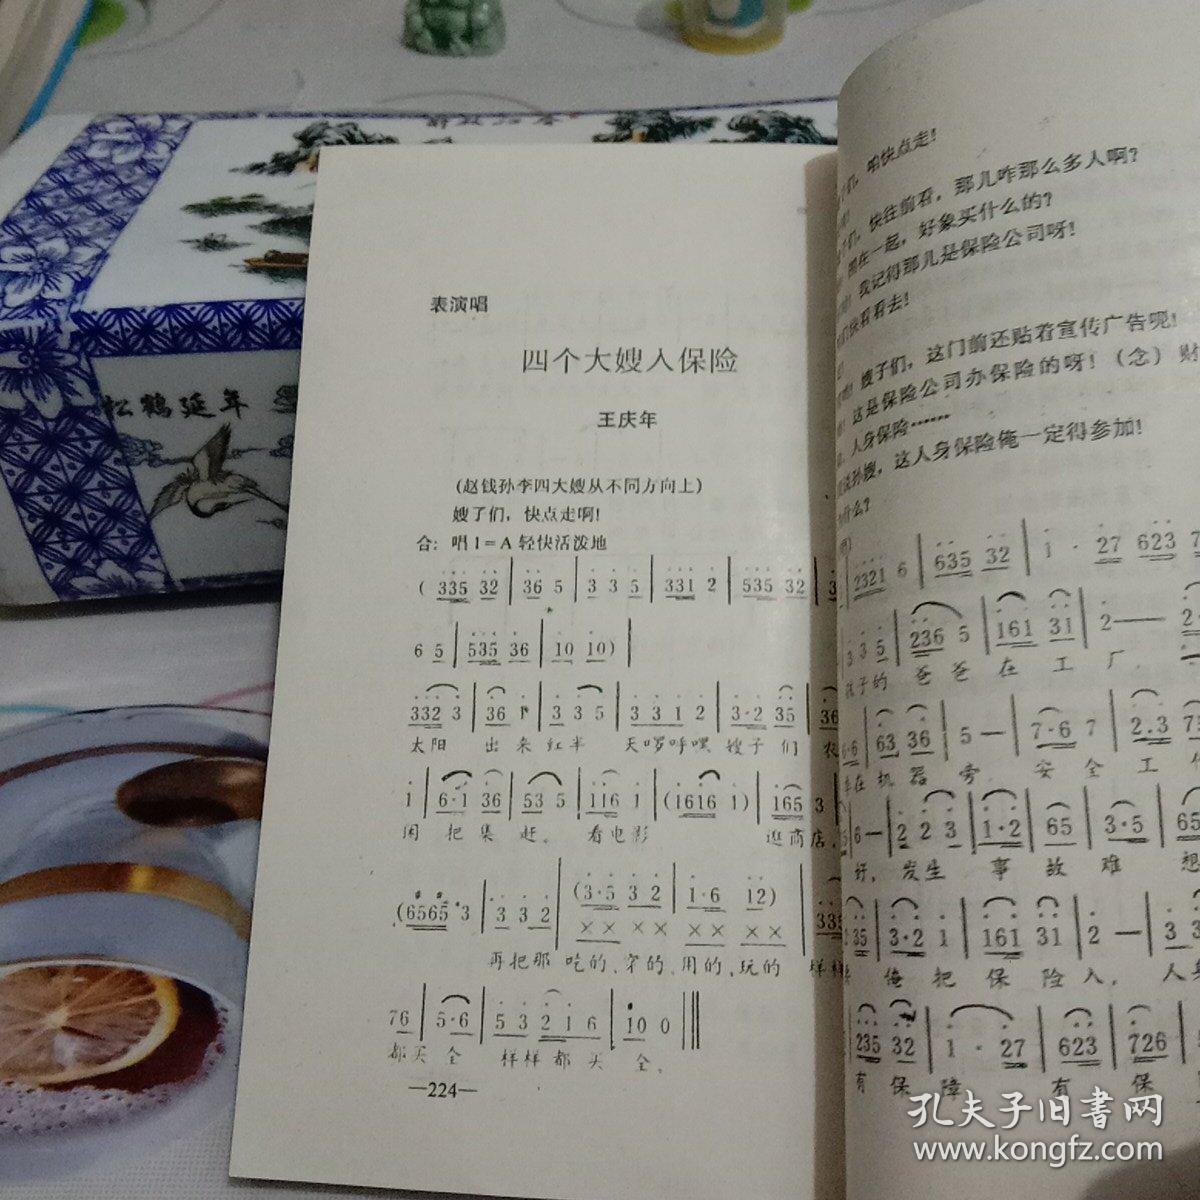 松鹤延年
表演唱
四个大嫂入保险
王庆年
(赵钱孙李四大嫂从不同方向上)
嫂子们，快点走啊!
合: 唱 1=A 轻快活泼地
( 335 32 | 36 5 | 3 3 5 | 331 2 | 535 32 |
6 5 | 535 36 | 10 10) |
332 3 | 36 1 | 3 3 5 | 3 3 1 2 | 3·2 35 | 36
太阳 出来红半 天啰呼嘿 嫂子们 农
1 | 6·1 36 | 53 5 | 116 1 | (1616 1) | 165 3
闲 把集赶。 看电影 逛商店，
(6565 3 | 3 3 2 | (3·5 3 2 | 1·6 12) | 335
×× ×× ×× ××
再把那 吃的、穿的、用的、玩的 样样
76 | 5·6 | 5 3 2 1 6 | 10 0 ‖
都买 全 样样都买 全。
—224—
们，咱快点走!
们，快往前看，那儿咋那么多人啊?
围在一起，好象买什么的?
我记得那儿是保险公司呀!
们快看看去!
嫂子们，这门前还贴着宣传广告呢!
这是保险公司办保险的呀!(念) 财
人身保险……
孙嫂，这人身保险俺一定得参加!
什么?
2321 6 | 635 32 | 1 · 27 623 7
3 3 5 | 236 5 | 161 31 | 2—— | 2·
孩子的 爸爸 在 工 厂，
6·6 | 63 36 | 5 — | 7·6 7 | 2.3 75
在机器 旁 安全 工 作
6— | 2 2 3 | 1·2 | 65 | 3·5 | 65
好，发生 事 故 难 想
35 | 3·2 1 | 161 31 | 2 — | 3 3
俺 把 保 险 入， 人身
235 32 | 1 · 27 | 623 | 726
有 保 障 有 保
孔夫子旧书网
www.kongfz.com